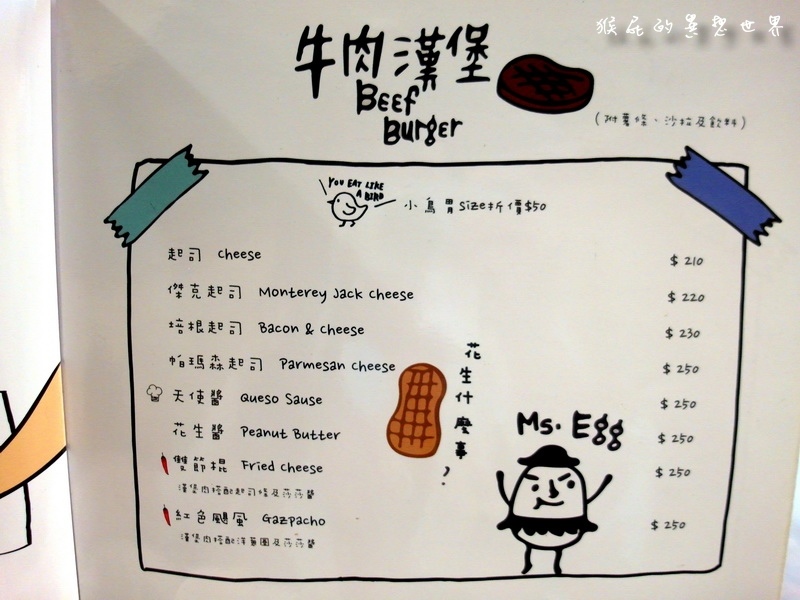 猴屁的異想世界
牛肉漢堡
Beef
Burger
(附薯條、沙拉及飲料)
YOU EAT LIKE
A BIRD
小鳥胃size折價$50
起司 Cheese $ 210
傑克起司 Monterey Jack Cheese $ 220
培根起司 Bacon & Cheese $ 230
帕瑪森起司 Parmesan Cheese $ 250
天使醬 Queso Sause $ 250
花生醬 Peanut Butter $ 250
雙節棍 Fried Cheese $ 250
漢堡肉搭配起司條及莎莎醬
紅色颶風 Gazpacho $ 250
漢堡肉搭配洋蔥圈及莎莎醬
花生什麼事,.
Ms. Egg